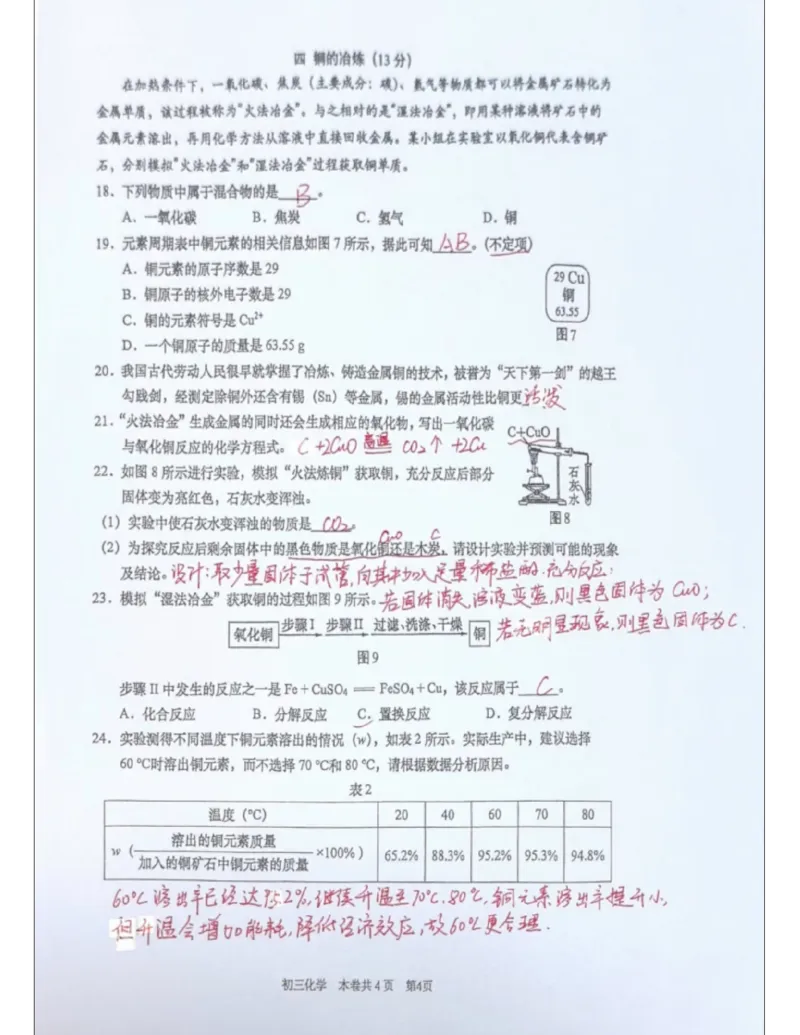 四 铜的冶炼（13分）
在加热条件下，一氧化碳、焦炭（主要成分：碳）、氢气等物质都可以将金属矿石转化为
金属单质，该过程被称为“火法冶金”。与之相对的是“湿法冶金”，即用某种溶液将矿石中的
金属元素溶出，再用化学方法从溶液中直接回收金属。某小组在实验室以氧化铜代表含铜矿
石，分别模拟“火法冶金”和“湿法冶金”过程获取铜单质。
18．下列物质中属于混合物的是 B 。
A．一氧化碳 B．焦炭 C．氢气 D．铜
19．元素周期表中铜元素的相关信息如图7所示，据此可知 AB 。（不定项）
A．铜元素的原子序数是29
B．铜原子的核外电子数是29
C．铜的元素符号是Cu²⁺
D．一个铜原子的质量是63.55 g
29 Cu
铜
63.55
图7
20．我国古代劳动人民很早就掌握了冶炼、铸造金属铜的技术，被誉为“天下第一剑”的越王
勾践剑，经测定除铜外还含有锡（Sn）等金属，锡的金属活动性比铜更活泼
21．“火法冶金”生成金属的同时还会生成相应的氧化物，写出一氧化碳
与氧化铜反应的化学方程式。C+2CuO 高温 CO₂↑+2Cu
22．如图8所示进行实验，模拟“火法炼铜”获取铜，充分反应后部分
固体变为亮红色，石灰水变浑浊。
C+CuO
石灰水
图8
（1）实验中使石灰水变浑浊的物质是 CO₂ 。
CuO C
（2）为探究反应后剩余固体中的黑色物质是氧化铜还是木炭，请设计实验并预测可能的现象
及结论。设计：取少量固体于试管，向其中加入足量稀盐酸，充分反应；
23．模拟“湿法冶金”获取铜的过程如图9所示。若固体消失，溶液变蓝，则黑色固体为CuO；
氧化铜 步骤Ⅰ 步骤Ⅱ 过滤、洗涤、干燥 铜 若无明显现象，则黑色固体为C．
图9
步骤Ⅱ中发生的反应之一是Fe+CuSO₄ ══ FeSO₄+Cu，该反应属于 C 。
A．化合反应 B．分解反应 C．置换反应 D．复分解反应
24．实验测得不同温度下铜元素溶出的情况（w），如表2所示。实际生产中，建议选择
60 ℃时溶出铜元素，而不选择70 ℃和80 ℃，请根据数据分析原因。
表2
温度（℃） 20 40 60 70 80
w（溶出的铜元素质量/加入的铜矿石中铜元素的质量×100%） 65.2% 88.3% 95.2% 95.3% 94.8%
60℃溶出率已经达95.2%，继续升温至70℃、80℃，铜元素溶出率提升小，
但升温会增加能耗，降低经济效应，故60℃更合理．
初三化学 本卷共4页 第4页